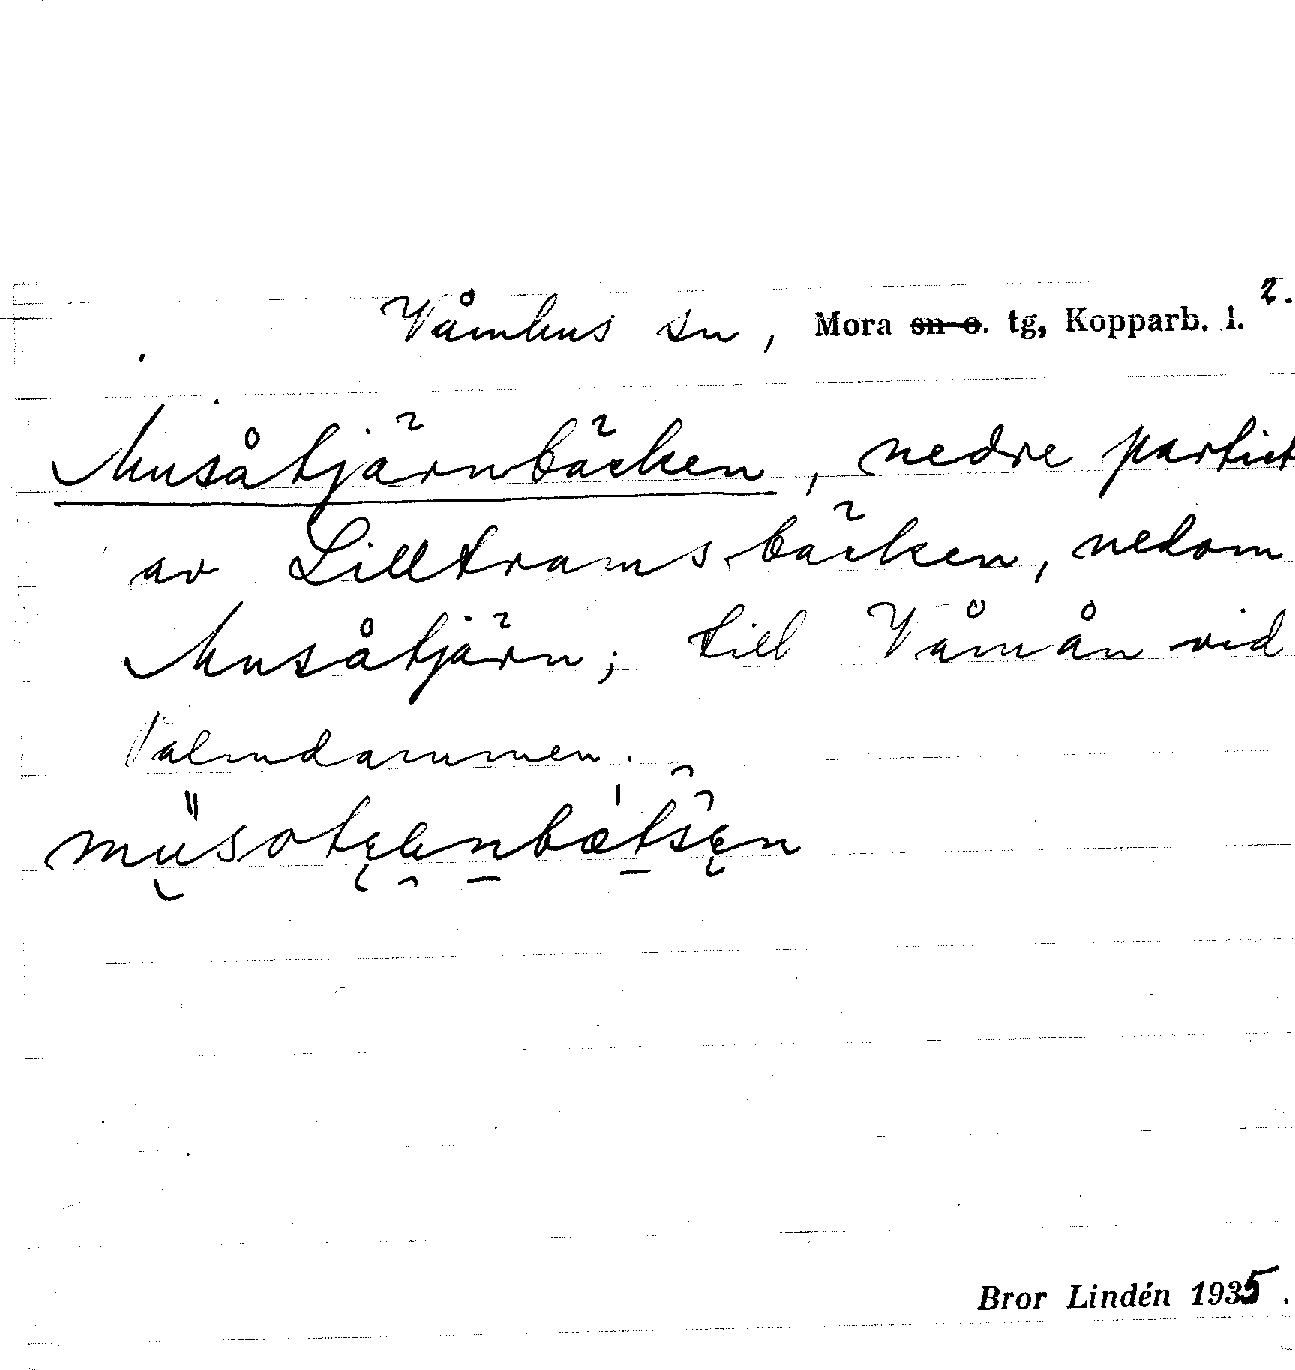 2.
Våmhus sn, Mora sn o. tg, Kopparb. l.
Musåtjärnbäcken, nedre partiet
av Lilltramsbäcken, nedom
Musåtjärn; till Våmån vid
Valmdammen.
Bror Lindén 1935.